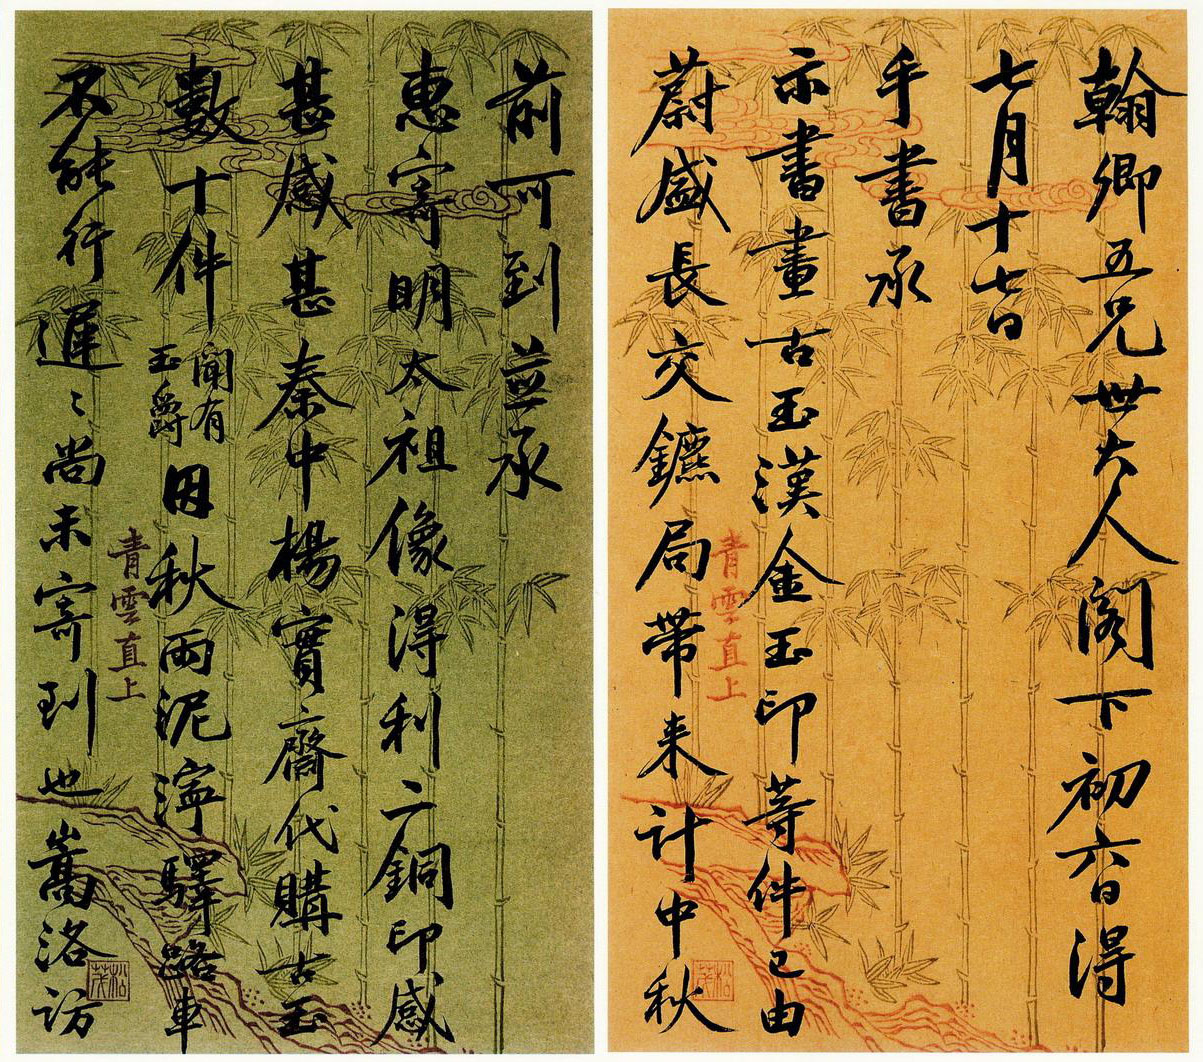 翰卿五兄世大人閣下初六日得
七月十七日
手書承
示書畫古玉漢金玉印等件已由
蔚盛長交鑣局帶来計中秋
前可到并承
惠寄明太祖像得利二銅印感
甚感甚秦中楊實齋代購古玉
數十件聞有玉爵因秋雨泥濘驛路車
不能行遲〻尚未寄到也嵩洛訪
青雲直上
松茂
青雲直上
松茂